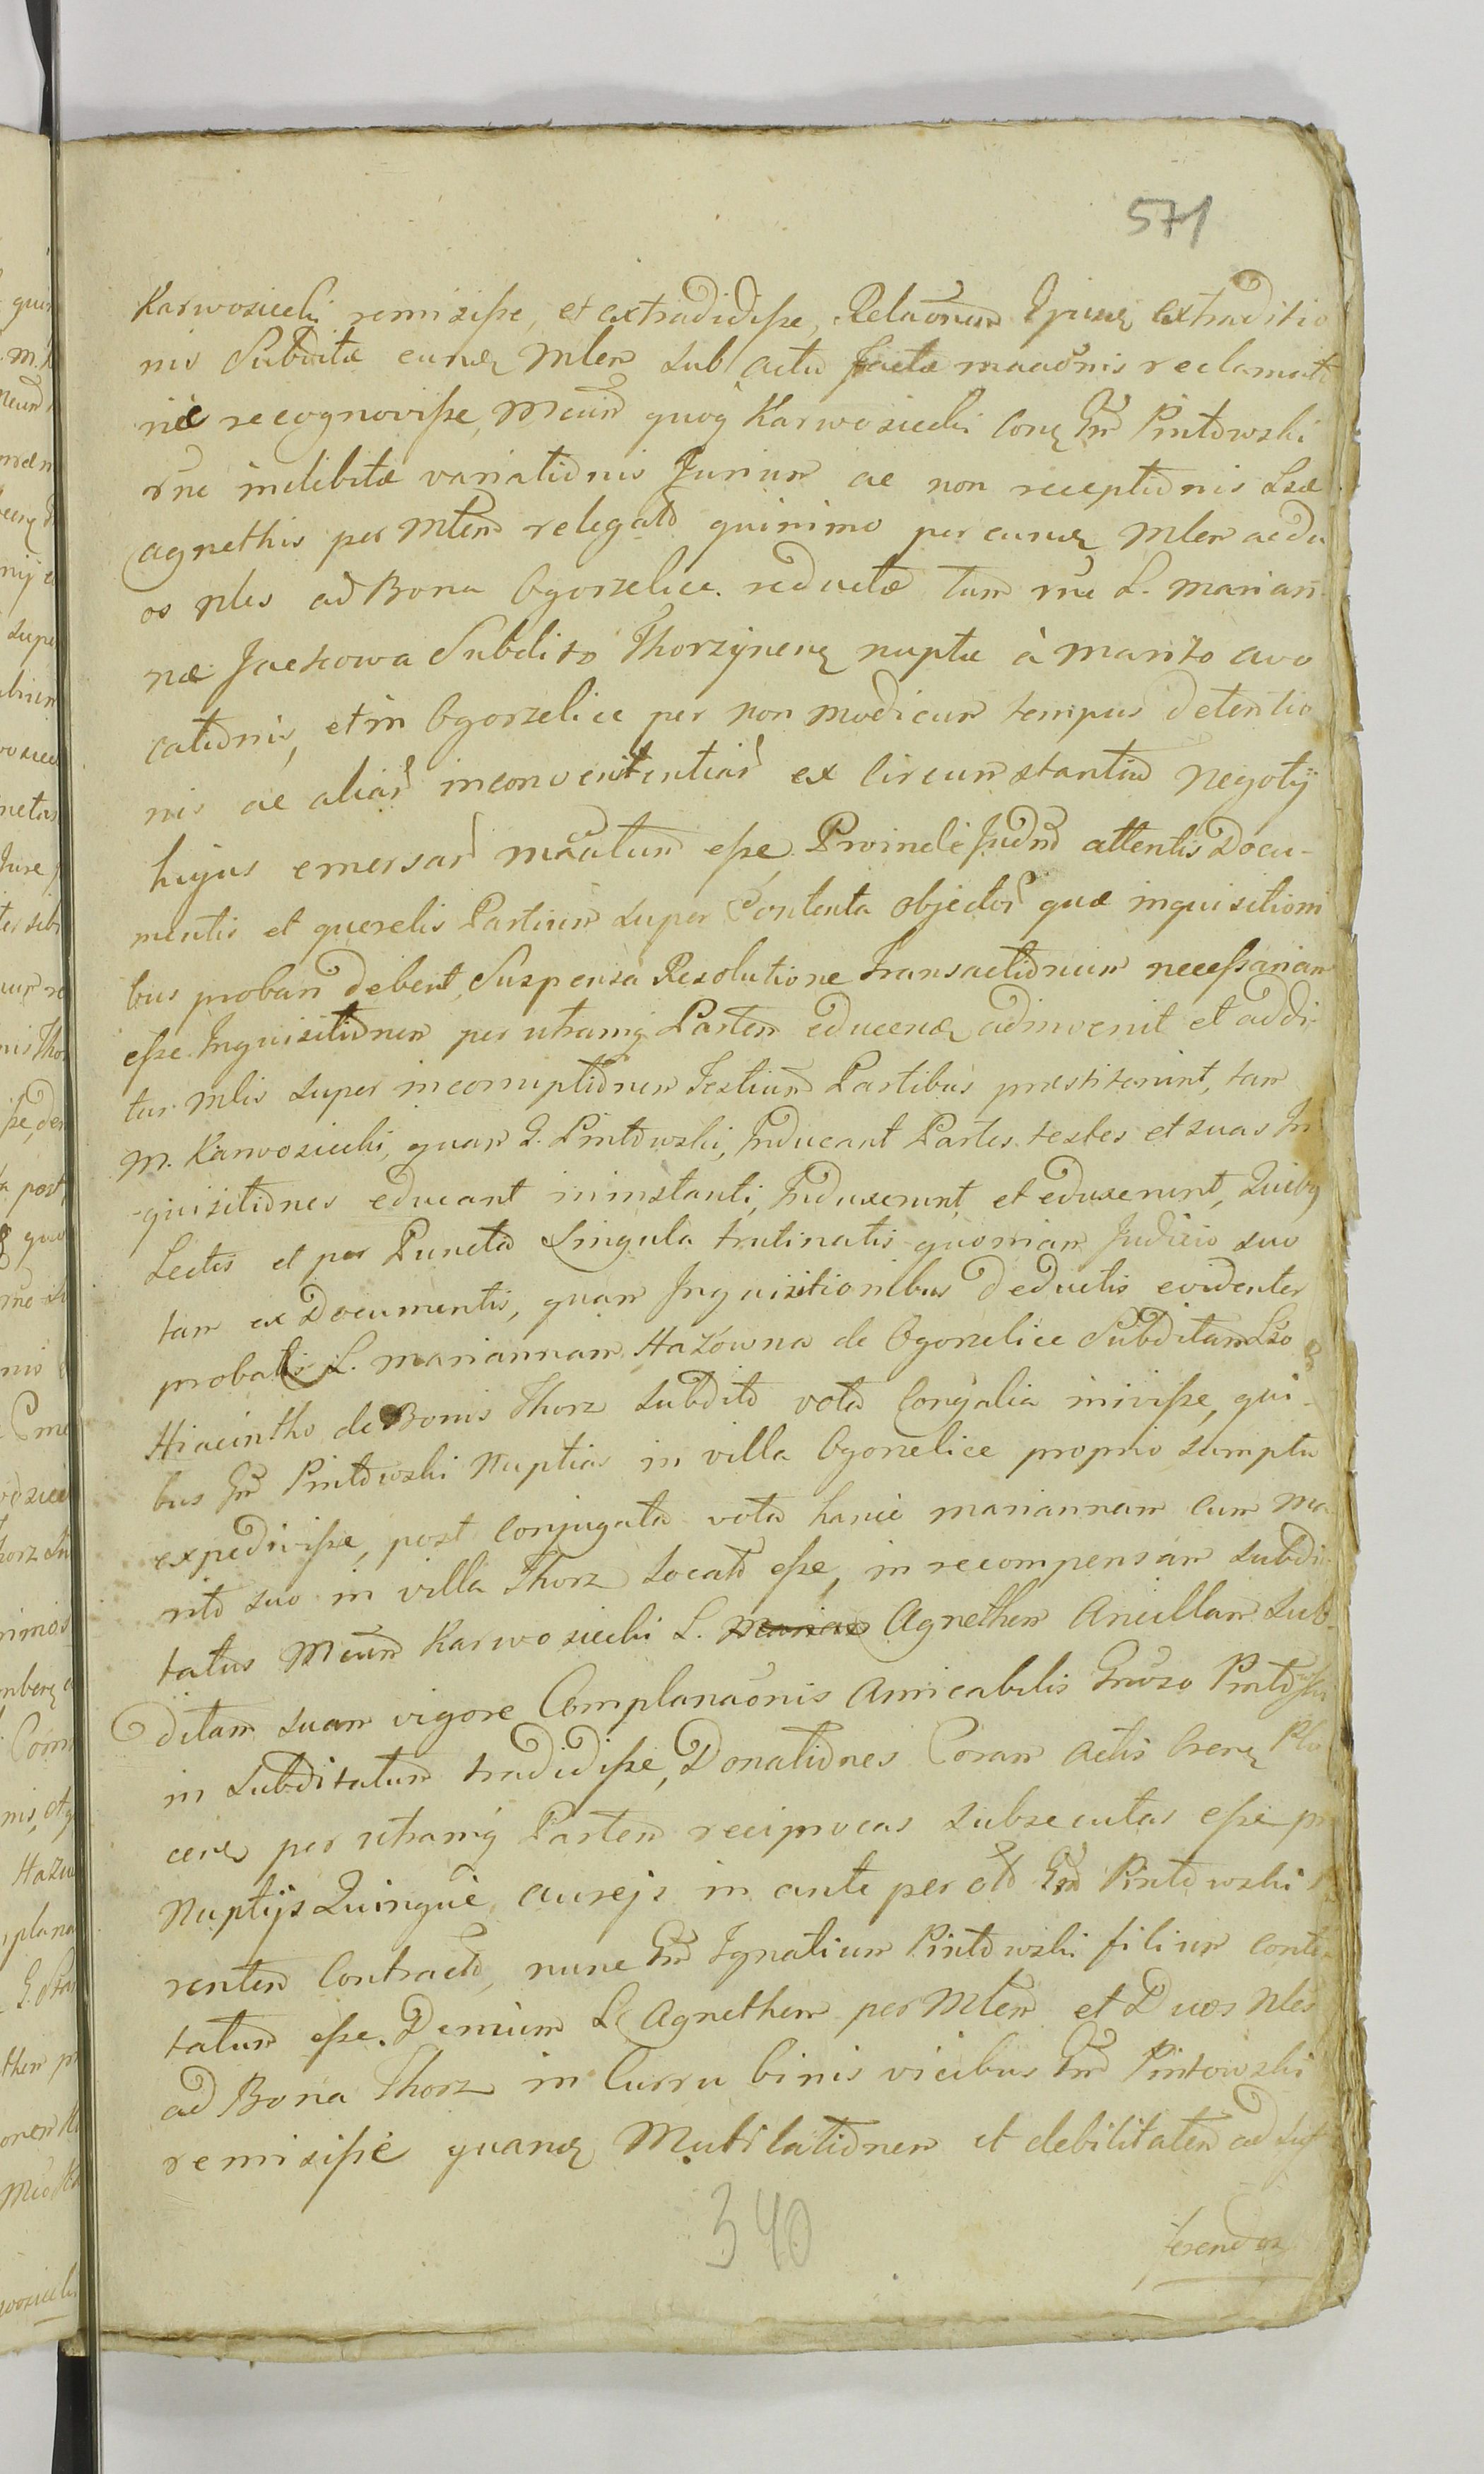 571
Karwosiecki remisisse, et extradidisse, Relaōnem Ejusq extraditio
nis Subditæ eunq Mlem sub actu factæ maāōnis reclamati
næ recognovisse, Mcum quoq Karwosiecki Conq Gnm Pintowski
rne indebitæ variationis Jurium ac non receptionis Lsæ
agnethis per Mlem relegatæ quinimo per eunq Mlem ac du
os Nles ad Bona Ogorzelice reductæ tum rne L. Marian
næ Jackowa Subdito Thorzynenq nuptæ à marito avo
cationis, et in Ogorzelice per non modicum tempus detentio
nis ac aliar inconvenientiar ex Circumstantia Negotÿ
hujus emersar maatum esse, Proinde Judm attentis Docu-
mentis et querelis Partium super Contenta objector quæ inquisitioni
bus probari debent, Suspensa Resolutione Transactionum necessariam
esse Inquisitionem per utramq Partem educenq adinvenit et addi-
tur Mlis super incorruptionem Testium Partibus præstiterint, tam
M. Karwosiecki, quam G. Pintowski, Inducant Partes testes et suas In
quisitiones educant in instanti, Induxerunt et eduxerunt, Quibq
Lectis et per Puncta Singula trutinatis quoniam Judicio suo
tam ex Documentis, quam Inquisitionibus deductis evidenter
probatis L. Mariannam Hazowna de Ogorzelice Subditam Lso
Hiacintho de Bonis Thorz Subdito vota Conjalia inivisse, qui-
bus Gnm Pintowski Nuptias in villa Ogorzelice proprio sumptu
expedivisse, post Conjugata vota hance mariannam cum ma
rito suo in villa Thorz locatā esse, in recompensam subdi
tatus Mcum Karwosiecki L. Agnethem Ancillam Sub-
ditam suam vigore Complanaōnis Amicabilis Gnroso Pintowski
in Subditatum tradidisse, Donationes Coram Actis Crenq Plo
cenq per utramq Partem reciprocas subsecutas esse pro
Nuptÿs Quinque aureis in ante per otm Gnm Pintowski
rentem Contracto, nunc Gnm Ignatium Pintowski filium conten
tatum esse. Demum L Agnethem per Mlem et Duos Nles
ad Bona Thorz in Curru binis vicibus Gnm Pintowski
remisisse quamq Mutilationem et debilitatem ad suf
ferendas
340